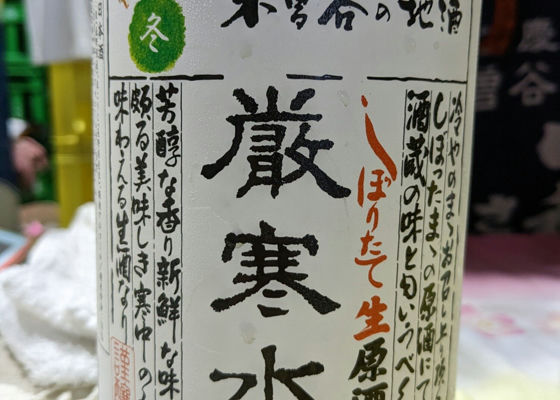 冬
木曽谷の地酒
冷やのまゝお召し上り頂
しぼったまゝの原酒にて
酒蔵の味と匂いうべく
しぼりたて生原酒
厳寒水
芳醇な香り新鮮な味
頗る美味しき寒中の
味わえる生酒なり